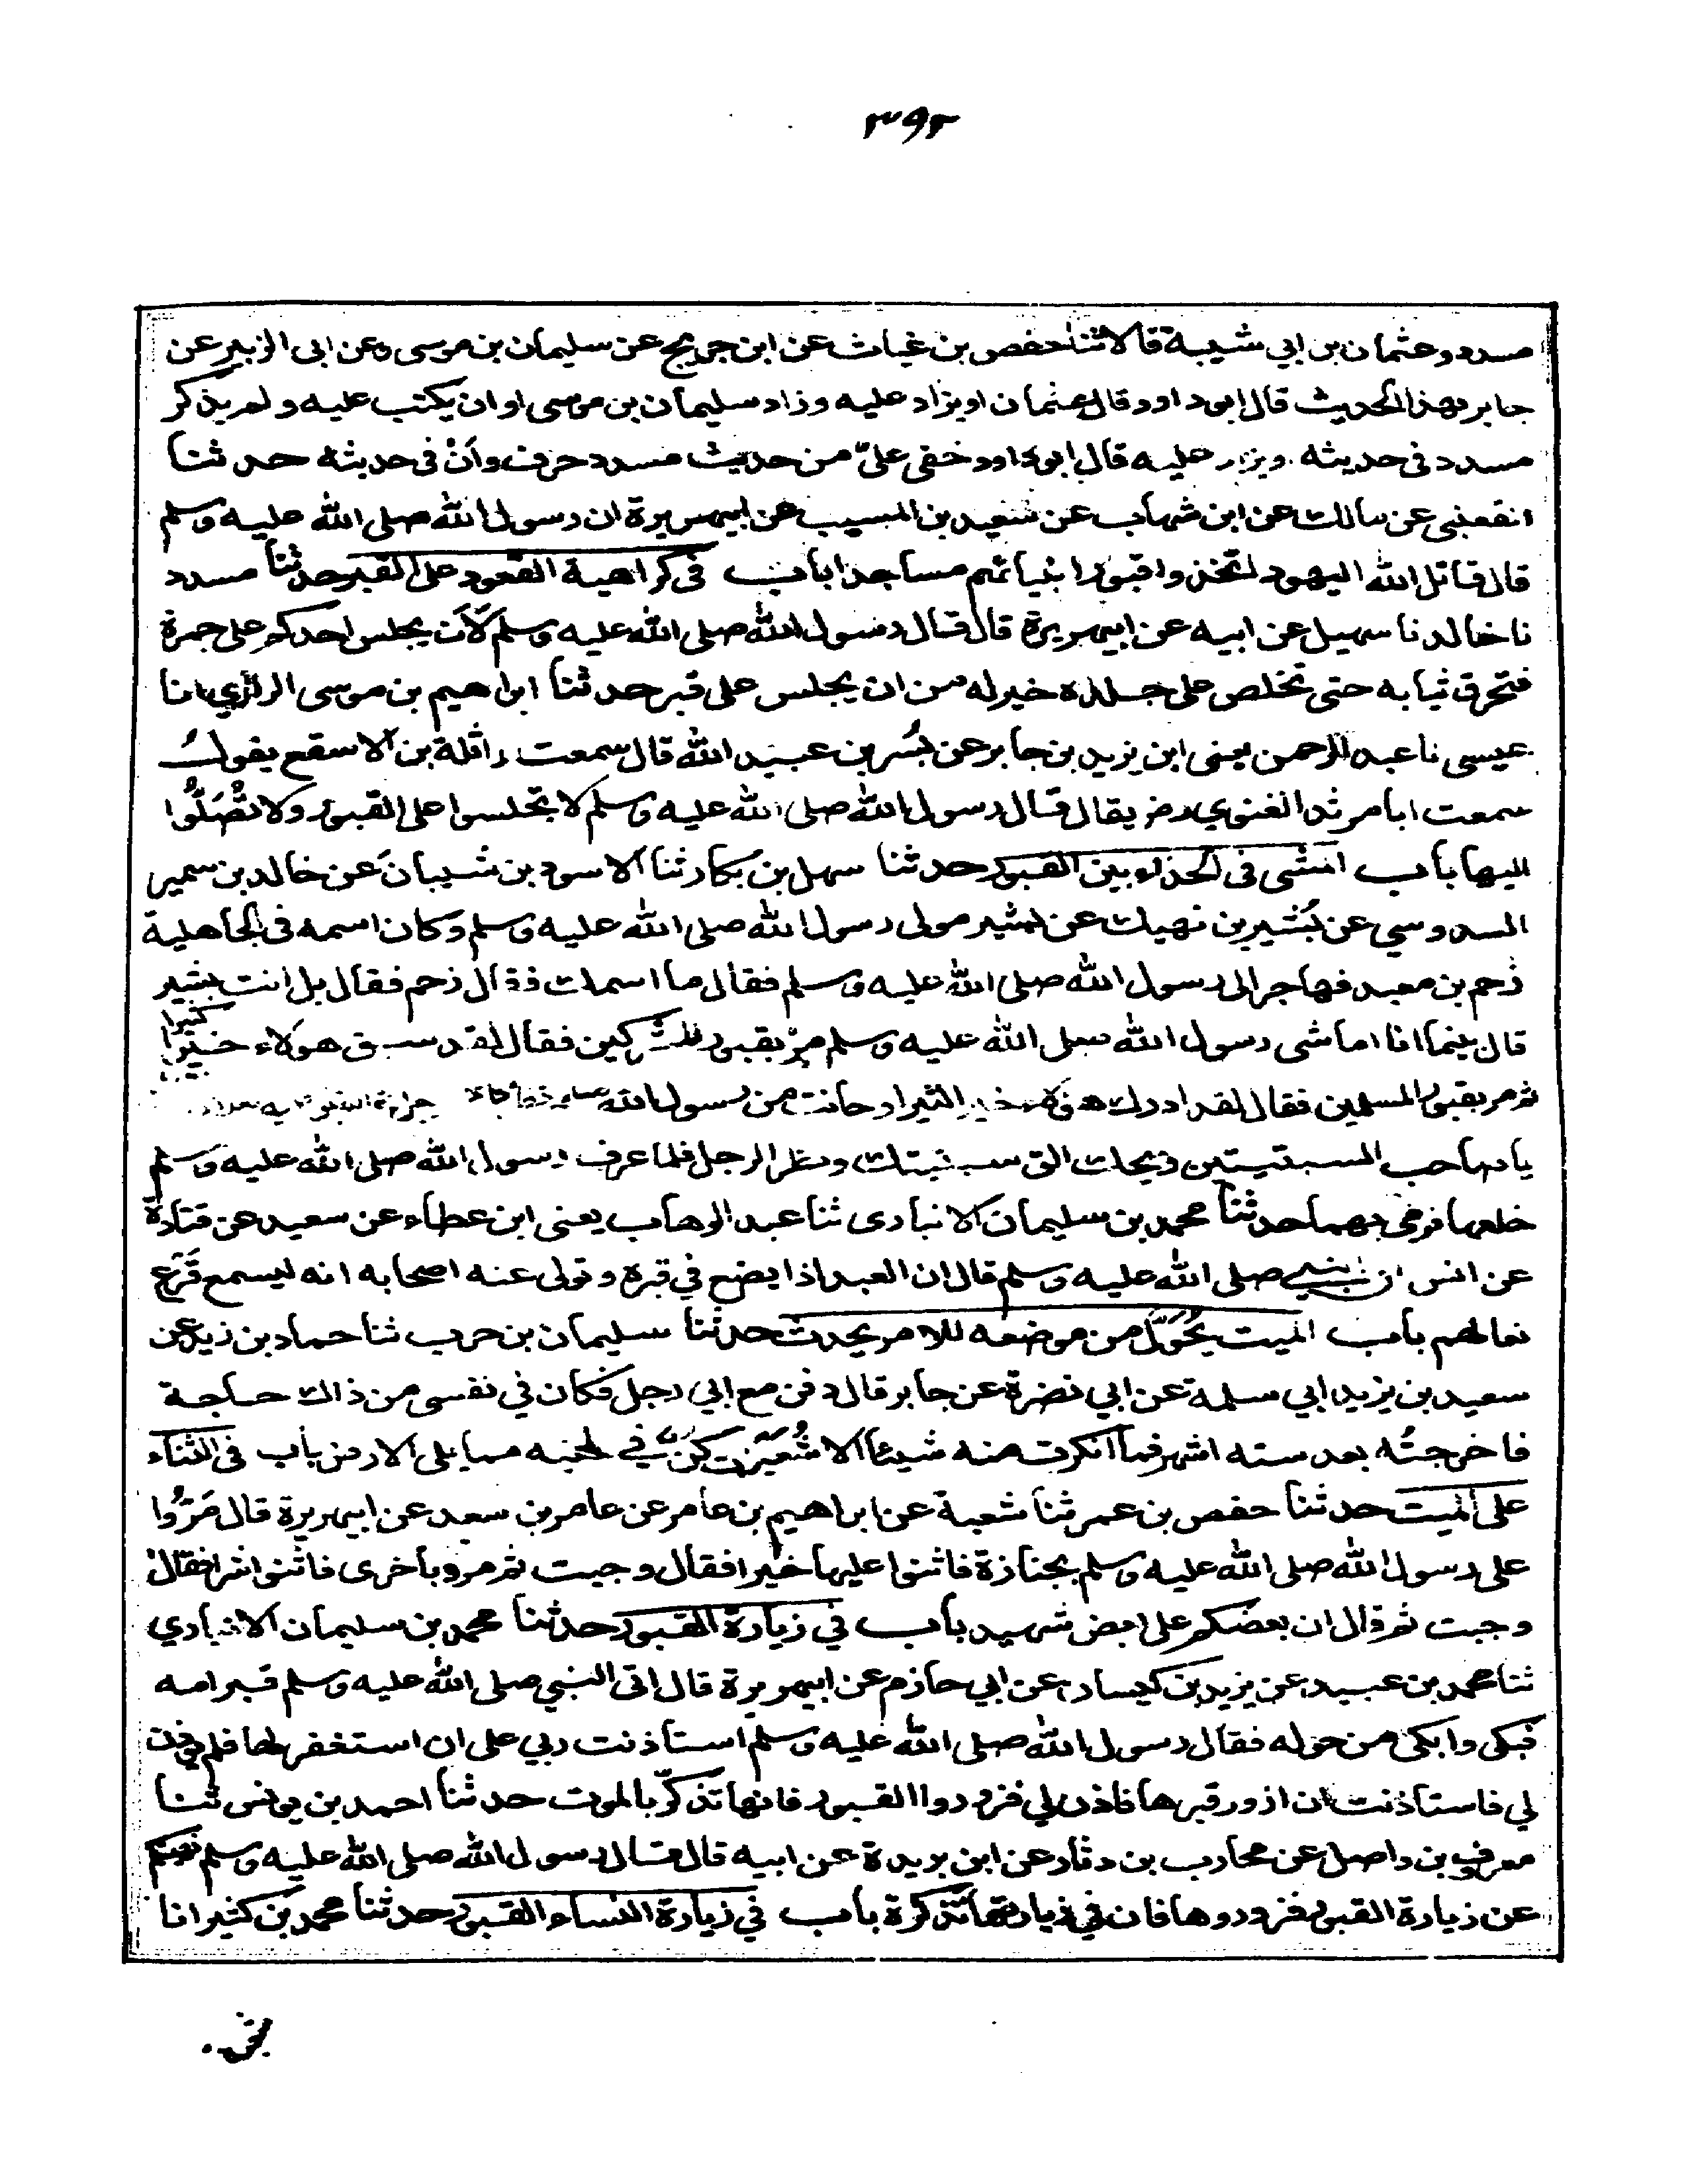 ٣٩٢
مسدد وعثمان بن ابي شيبة قالا ثنا حفص بن غياث عن ابن جريج عن سليمان بن موسى وعن ابى الزبير عن
جابر بهذا الحديث قال ابو داود وقال عثمان او يزاد عليه وزاد سليمان بن موسى او ان يكتب عليه ولم يذكر
مسدد فى حديثه ويزاد عليه قال ابو داود خفى علىّ من حديث مسدد حرف وأنْ فى حديثه حدثنا
القعنبى عن مالك عن ابن شهاب عن سعيد بن المسيب عن ابيهريرة ان رسول الله صلى الله عليه وسلم
قال قاتل الله اليهود اتخذوا قبور انبيائهم مساجدا باب فى كراهية القعود على القبر حدثنا مسدد
نا خالد نا سهيل عن ابيه عن ابيهريرة قال قال رسول الله صلى الله عليه وسلم لَأَن يجلس احدكم على جمرة
فتحرق ثيابه حتى تخلص على جلده خير له من ان يجلس على قبر حدثنا ابراهيم بن موسى الرازي انا
عيسى نا عبد الرحمن يعنى ابن يزيد بن جابر عن بُسر بن عبيد الله قال سمعت واثلة بن الاسقع يقول
سمعت ابا مرثد الغنوي رضـ يقال قال رسول الله صلى الله عليه وسلم لا تجلسوا على القبور ولا تُصَلُّوا
اليها باب المشى فى الحذاء بين القبور حدثنا سهل بن بكار ثنا الاسود بن شيبان عن خالد بن سمير
السدوسي عن بُشير بن نهيك عن بشير مولى رسول الله صلى الله عليه وسلم وكان اسمه فى الجاهلية
زحم بن معبد فهاجر الى رسول الله صلى الله عليه وسلم فقال ما اسمك فقال زحم فقال بل انت بشير
قال بينما انا اماشى رسول الله صلى الله عليه وسلم مرّ بقبور المشركين فقال لقد سبق هؤلاء خيرا كثيرا
ثم مر بقبور المسلمين فقال لقد ادرك هؤلاء خيرا كثيرا وحانت من رسول الله
يا صاحب السبتيتين ويحك الق سبتيتك ونظر الرجل فلما عرف رسول الله صلى الله عليه وسلم
خلعها فرمى بهما حدثنا محمد بن سليمان الانبارى ثنا عبد الوهاب يعنى ابن عطاء عن سعيد عن قتادة
عن انس ان النبي صلى الله عليه وسلم قال ان العبد اذا يضع في قبره وتولى عنه اصحابه انه ليسمع قَرْع
نعالهم باب الميت يُحَوَّل من موضعه للامر يحدث حدثنا سليمان بن حرب ثنا حماد بن زيد عن
سعيد بن يزيد ابي سلمة عن ابي نضرة عن جابر قال دفن مع ابي رجل فكان في نفسى من ذاك حاجة
فاخرجتُه بعد سته اشهر فما انكرت منه شيئا الا شُعَيْرَات كُنّ في لحيته مما يلى الارض باب فى الثناء
على الميت حدثنا حفص بن عمر ثنا شعبة عن ابراهيم بن عامر عن عامر بن سعيد عن ابيهريرة قال مَرُّوا
على رسول الله صلى الله عليه وسلم بجنازة فاثنوا عليها خيرا فقال وجبت ثم مروا بأخرى فاثنوا شرا فقال
وجبت ثم قال ان بعضكم على بعض شهيد باب في زيارة القبور حدثنا محمد بن سليمان الانباري
ثنا محمد بن عبيد عن يزيد بن كيسان عن ابي حازم عن ابيهريرة قال اتى النبي صلى الله عليه وسلم قبر امه
فبكى وابكى من حوله فقال رسول الله صلى الله عليه وسلم استاذنت ربي على ان استغفر لها فلم يؤذن
لي فاستاذنت ان ازور قبرها فاذن لي فزوروا القبور فانها تذكّر بالموت حدثنا احمد بن يونس ثنا
معرف بن واصل عن محارب بن دثار عن ابن بريدة عن ابيه قال قال رسول الله صلى الله عليه وسلم نهيتكم
عن زيارة القبور فزوروها فان في زيارتها تذكرة باب في زيارة النساء القبور حدثنا محمد بن كثير انا